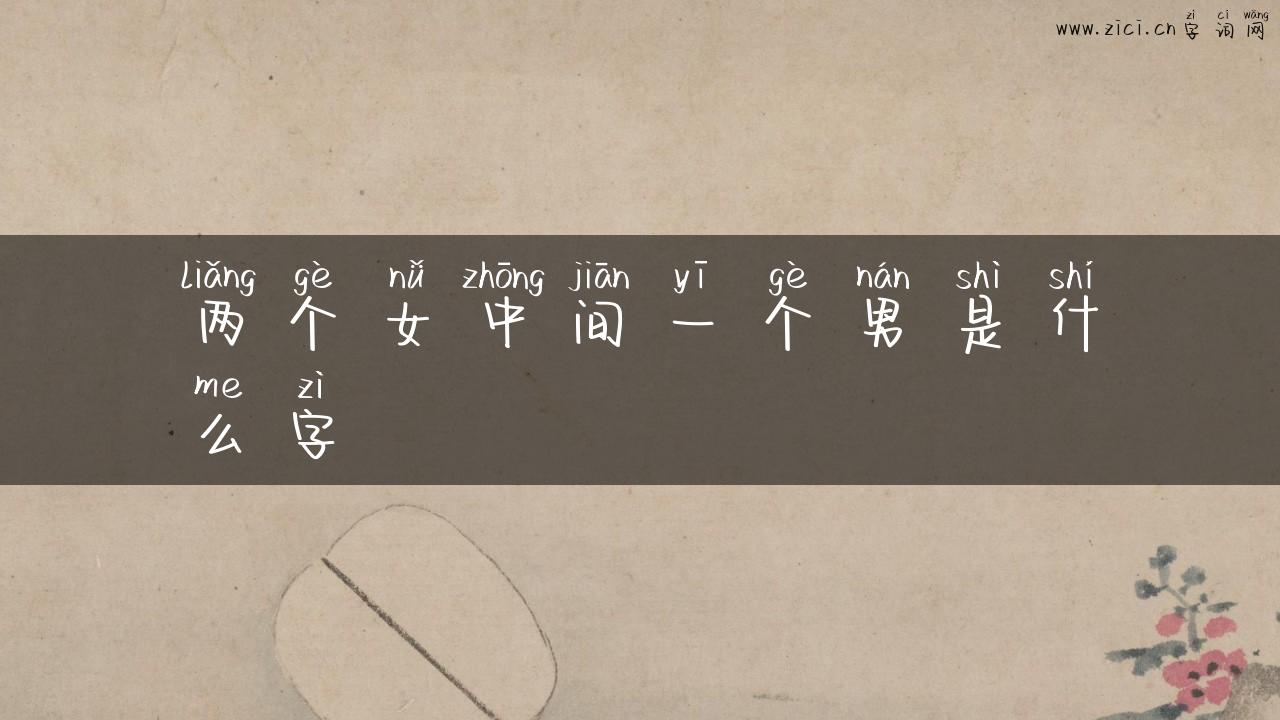 zì cí wǎng
www.zici.cn字词网
liǎng gè nǚ zhōng jiān yī gè nán shì shí
两个女中间一个男是什
me zì
么字